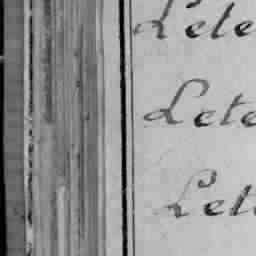 Lete
Lete
Lete